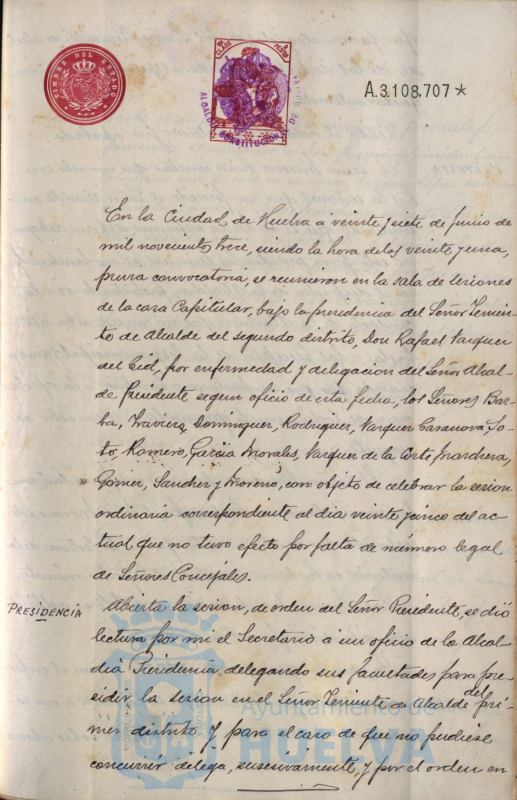 TIMBRE DEL ESTADO
CLASE
ALCALDIA CONSTITUCIONAL DE
A.3.108,707*
En la Ciudad de Huelva á veinte y siete de Junio de
mil novecientos trece, siendo la hora de las veinte y una,
previa convocatoria, se reunieron en la sala de sesiones
de la casa Capitular, bajo la presidencia del Señor Tenien-
to de Alcalde del segundo distrito, Don Rafael Vazquez
del Cid, por enfermedad y delegacion del Señor Alcal-
de Presidente segun oficio de esta fecha, los Señores Bar-
ba, Dominguez, Rodriguez, Vazquez Casanova, So-
to, Romero, Garcia Morales, Vazquez de la Corte, Marchena,
Gómez, Sanchez y Moreno, con objeto de celebrar la sesion
ordinaria correspondiente al dia veinte y cinco del ac-
tual que no tuvo efecto por falta de número legal
de Señores Concejales.
PRESIDENCIA
Abierta la sesion, de orden del Señor Presidente, se dió
lectura por mi el Secretario á un oficio de la Alcal-
dia Presidencia, delegando sus facultades para pre-
sidir la sesion en el Señor Teniente de Alcalde del pri-
mer distrito y para el caso de que no pudiese
concurrir delega, susesivamente, y por el orden en
Ayuntamiento de
HUELVA